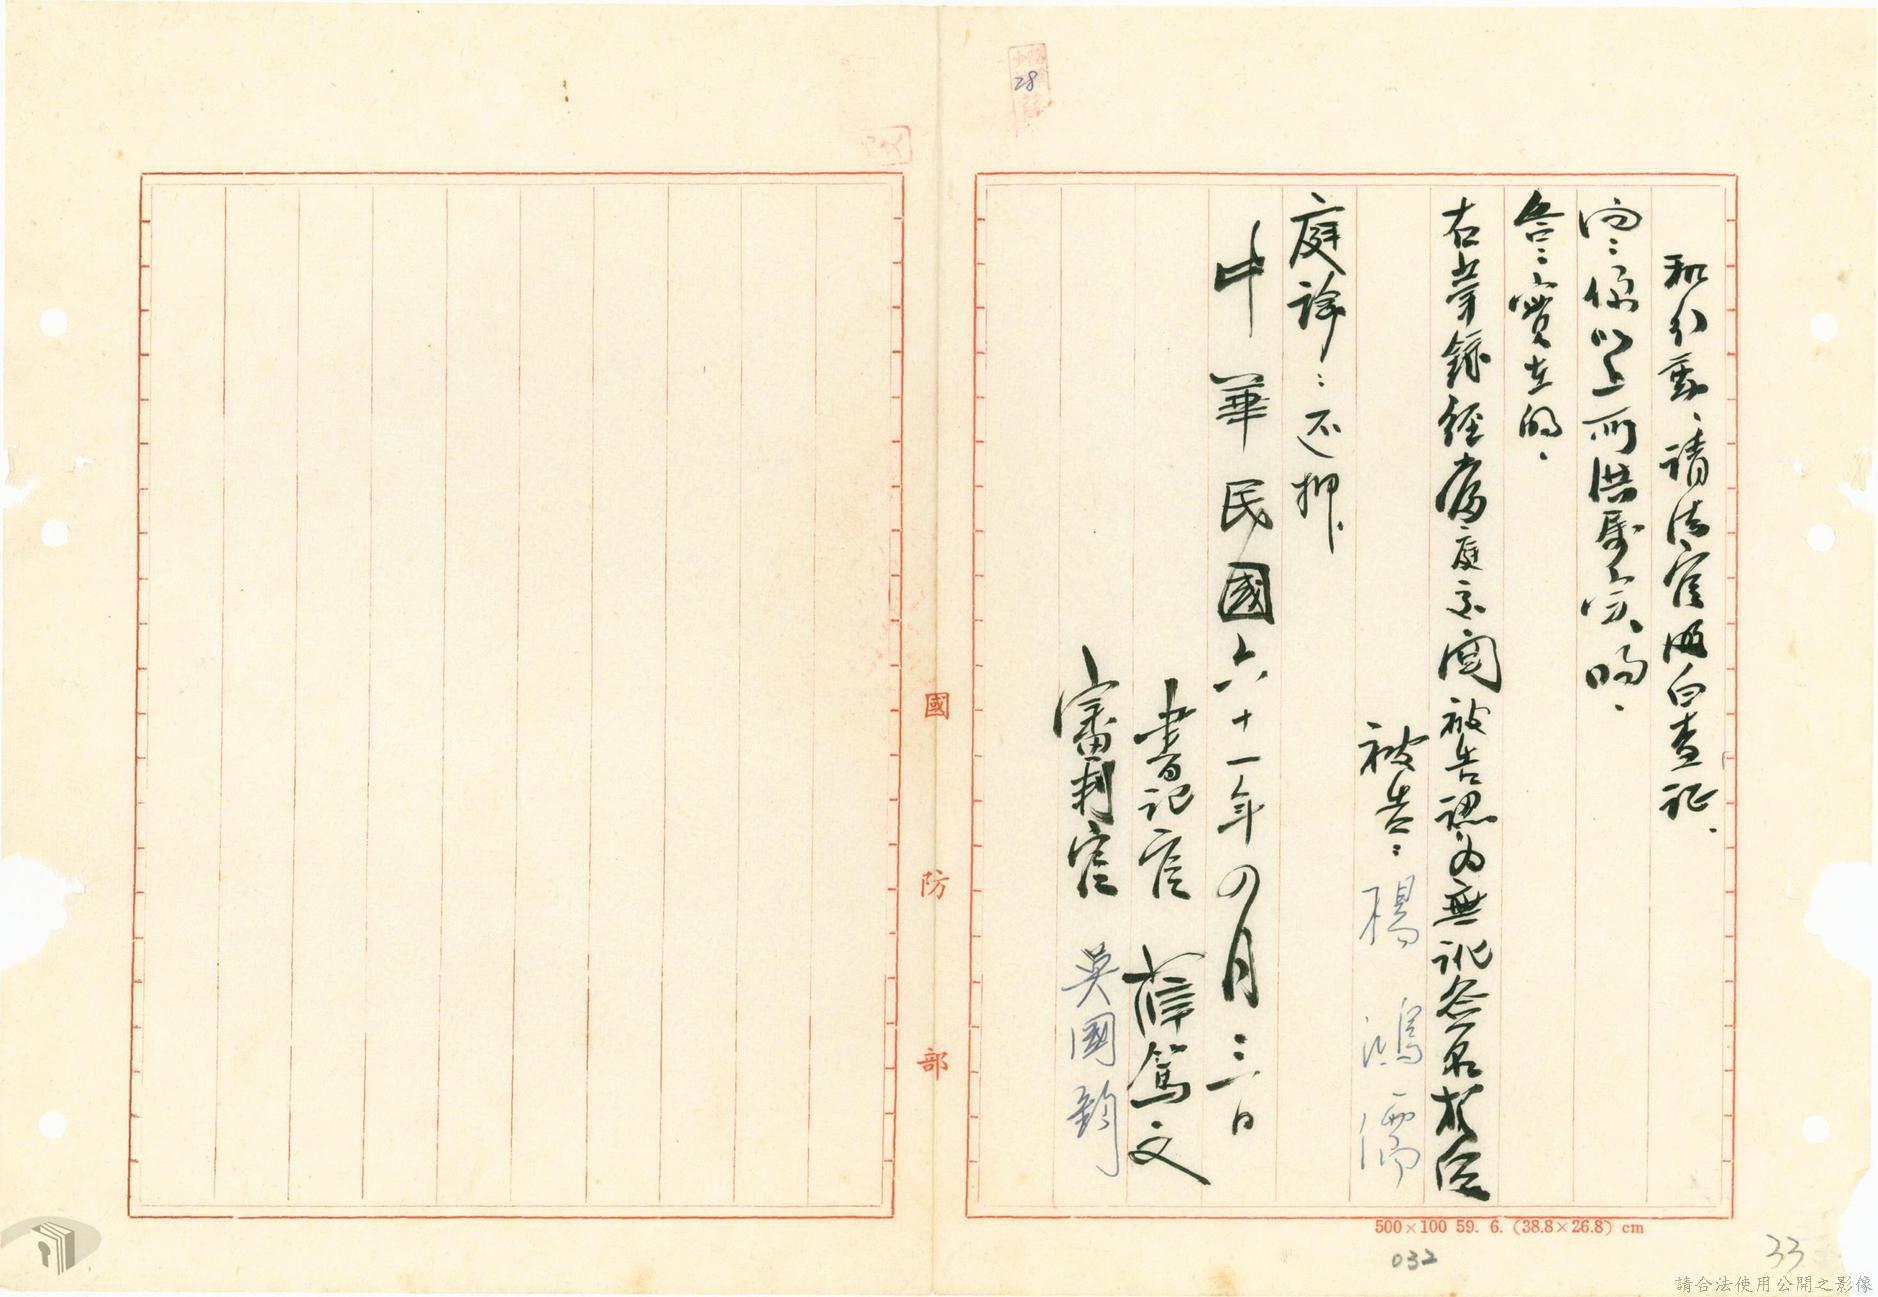 和行動，請法官明白查証。
問：你以上所供屬實嗎。
答：實在的。
右筆錄經當庭示閱被告認為無訛簽名於後
被告：楊鴻儒
庭諭：還押。
中華民國六十一年四月三日
書記官 薛篤文
審判官 吳國鈞
國防部
28
500×100 59. 6. (38.8×26.8) cm
032
33
請合法使用公開之影像